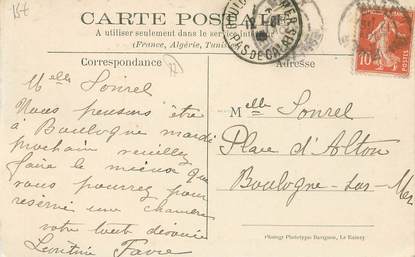 15f
CARTE POSTALE
A utiliser seulement dans le service intérieur
(France, Algérie, Tunisie)
Correspondance
Adresse
PAS DE CALAIS
10
POSTES
Melle Sonrel
Nous pensons être
à Boulogne mardi
prochain veuillez
faire le mieux que
vous pourrez pour
réservé une chambre
votre tout dévouée
Leontine Favre
Melle Sonrel
Place d'Alton
Boulogne-sur-Mer
Photogr. Phototypie Le Raincy